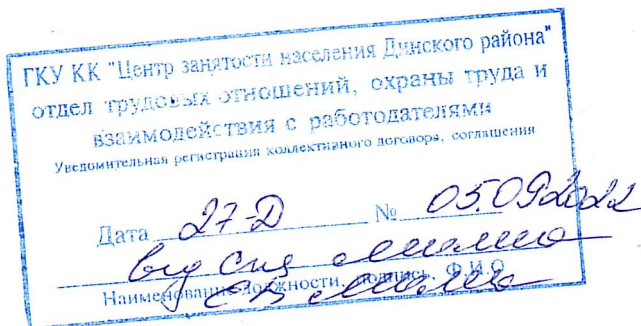 ГКУ КК "Центр занятости населения Динского района"
отдел трудовых отношений, охраны труда и
взаимодействия с работодателями
Уведомительная регистрация коллективного договора, соглашения
Дата 27-Д № 05.09.2022
Наименование должности, подпись, Ф.И.О.